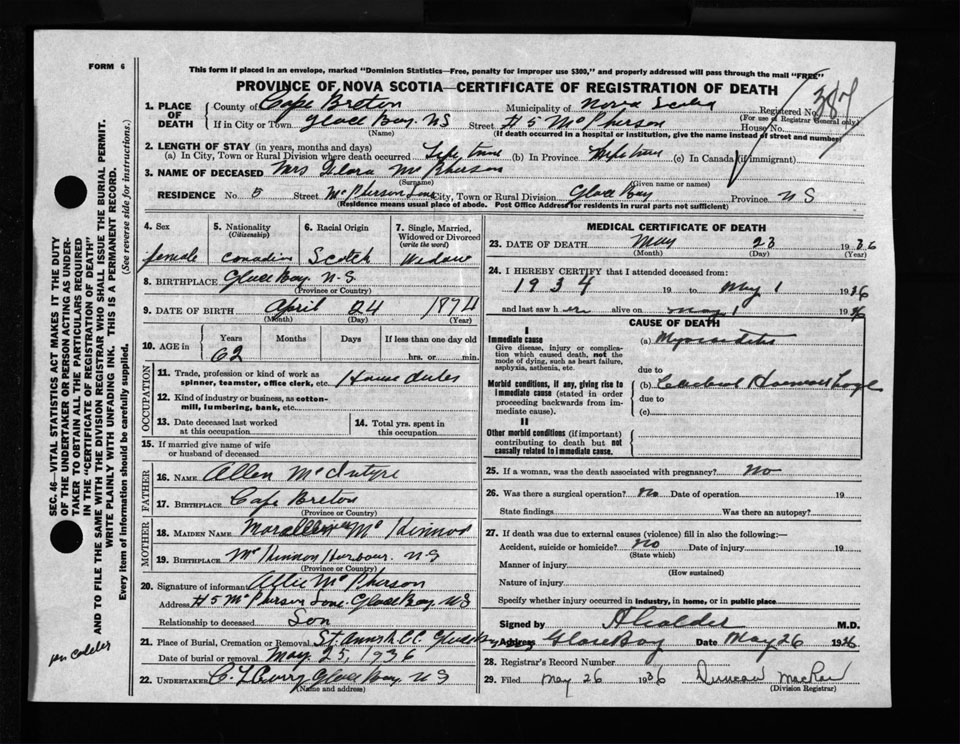 FORM 6
This form if placed in an envelope, marked "Dominion Statistics—Free, penalty for improper use $300," and properly addressed will pass through the mail "FREE"
PROVINCE OF NOVA SCOTIA—CERTIFICATE OF REGISTRATION OF DEATH
387
1. PLACE OF DEATH
County of Cape Breton Municipality of Nova Scotia Registered No.
(For use of Registrar General only)
If in City or Town Glace Bay. NS Street #5 McPherson House No.
(Name) (If death occurred in a hospital or institution, give the name instead of street and number)
2. LENGTH OF STAY (in years, months and days)
(a) In City, Town or Rural Division where death occurred Life time (b) In Province Life time (c) In Canada (if immigrant)
3. NAME OF DECEASED Mrs Flora McPherson
(Surname) (Given name or names)
RESIDENCE No. 5 Street McPherson Lane City, Town or Rural Division Glace Bay Province NS
(Residence means usual place of abode. Post Office Address for residents in rural parts not sufficient)
4. Sex 5. Nationality (Citizenship) 6. Racial Origin 7. Single, Married, Widowed or Divorced (write the word)
female Canadian Scotch Widow
8. BIRTHPLACE Glace Bay. N.S.
(Province or Country)
9. DATE OF BIRTH April 04 1874
(Month) (Day) (Year)
10. AGE in Years Months Days If less than one day old
62 hrs. or min.
OCCUPATION
11. Trade, profession or kind of work as spinner, teamster, office clerk, etc. House duties
12. Kind of industry or business, as cotton-mill, lumbering, bank, etc.
13. Date deceased last worked at this occupation
14. Total yrs. spent in this occupation
15. If married give name of wife or husband of deceased
FATHER
16. NAME Allen McIntyre
17. BIRTHPLACE Cape Breton
(Province or Country)
MOTHER
18. MAIDEN NAME McKinnon
19. BIRTHPLACE McKinnon Harbour. NS
(Province or Country)
20. Signature of informant Allie McPherson
Address #5 McPherson Lane. Glace Bay. NS
Relationship to deceased Son
21. Place of Burial, Cremation or Removal St. Anns R.C.C. Glace Bay
Date of burial or removal May. 25, 1936
22. UNDERTAKER C. Curry Glace Bay. NS
(Name and address)
MEDICAL CERTIFICATE OF DEATH
23. DATE OF DEATH May 23 1936
(Month) (Day) (Year)
24. I HEREBY CERTIFY that I attended deceased from:
1934 19 to May 1 1936
and last saw her alive on May 1 1936
CAUSE OF DEATH
I
Immediate cause
Give disease, injury or complication which caused death, not the mode of dying, such as heart failure, asphyxia, asthenia, etc.
(a) Myocarditis
due to
Morbid conditions, if any, giving rise to immediate cause (stated in order proceeding backwards from immediate cause).
(b) Cerebral Haemorrhage
due to
(c)
II
Other morbid conditions (if important) contributing to death but not causally related to immediate cause.
25. If a woman, was the death associated with pregnancy? No
26. Was there a surgical operation? No Date of operation 19
State findings Was there an autopsy?
27. If death was due to external causes (violence) fill in also the following:—
Accident, suicide or homicide? No Date of injury 19
(State which)
Manner of injury
(How sustained)
Nature of injury
Specify whether injury occurred in industry, in home, or in public place
Signed by A Calder M.D.
Address Glace Bay Date May 26 1936
28. Registrar's Record Number
29. Filed May 26 1936 Duncan MacRae
(Division Registrar)
SEC. 46—VITAL STATISTICS ACT MAKES IT THE DUTY
OF THE UNDERTAKER OR PERSON ACTING AS UNDER-
TAKER TO OBTAIN ALL THE PARTICULARS REQUIRED
IN THE "CERTIFICATE OF REGISTRATION OF DEATH"
AND TO FILE THE SAME WITH THE DIVISION REGISTRAR WHO SHALL ISSUE THE BURIAL PERMIT.
WRITE PLAINLY WITH UNFADING INK. THIS IS A PERMANENT RECORD.
Every item of information should be carefully supplied. (See reverse side for instructions.)